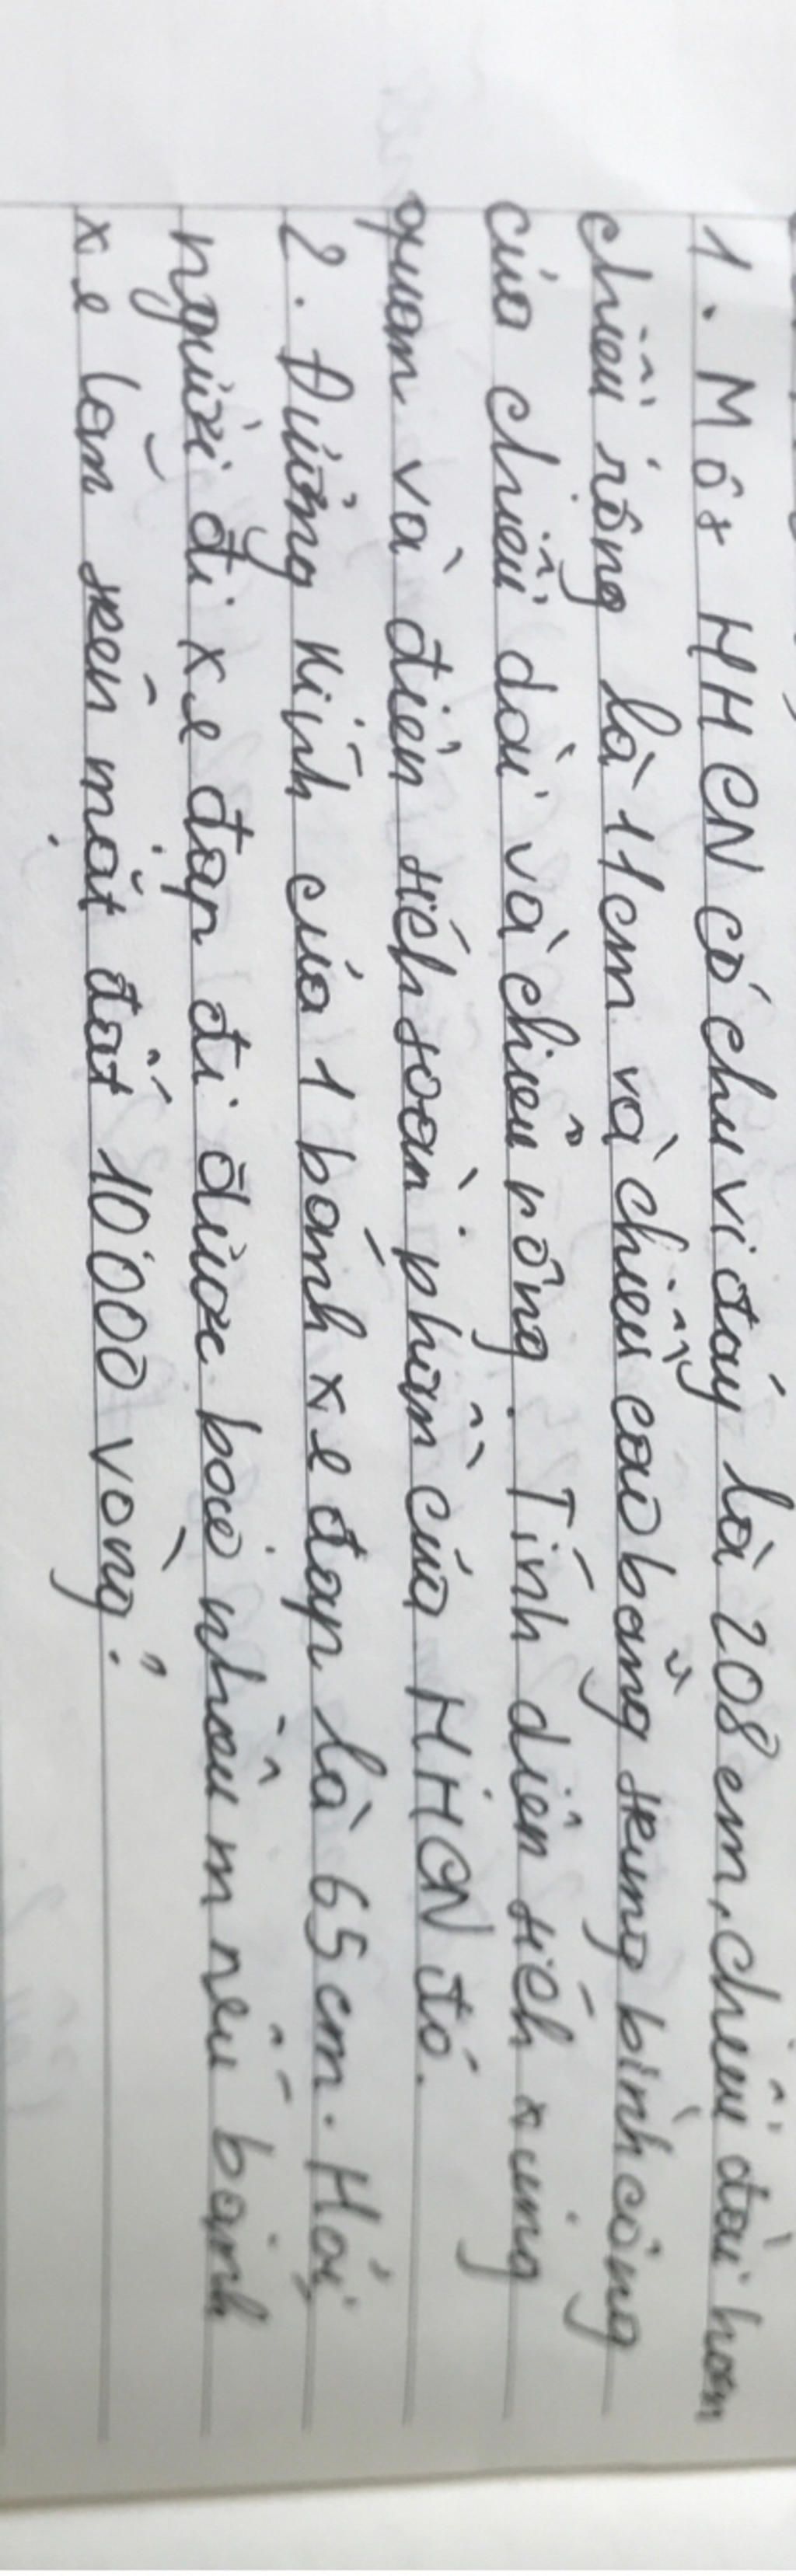 1. Một HHCN có chu vi đáy là 208 cm, chiều dài hơn
chiều rộng là 11cm và chiều cao bằng trung bình cộng
của chiều dài và chiều rộng. Tính diện tích xung
quan và diện tích toàn phần của HHCN đó.
2. Đường kính của 1 bánh xe đạp là 65 cm. Hỏi
người đi xe đạp đi được bao nhiêu m nếu bánh
xe lăn trên mặt đất 10 000 vòng?